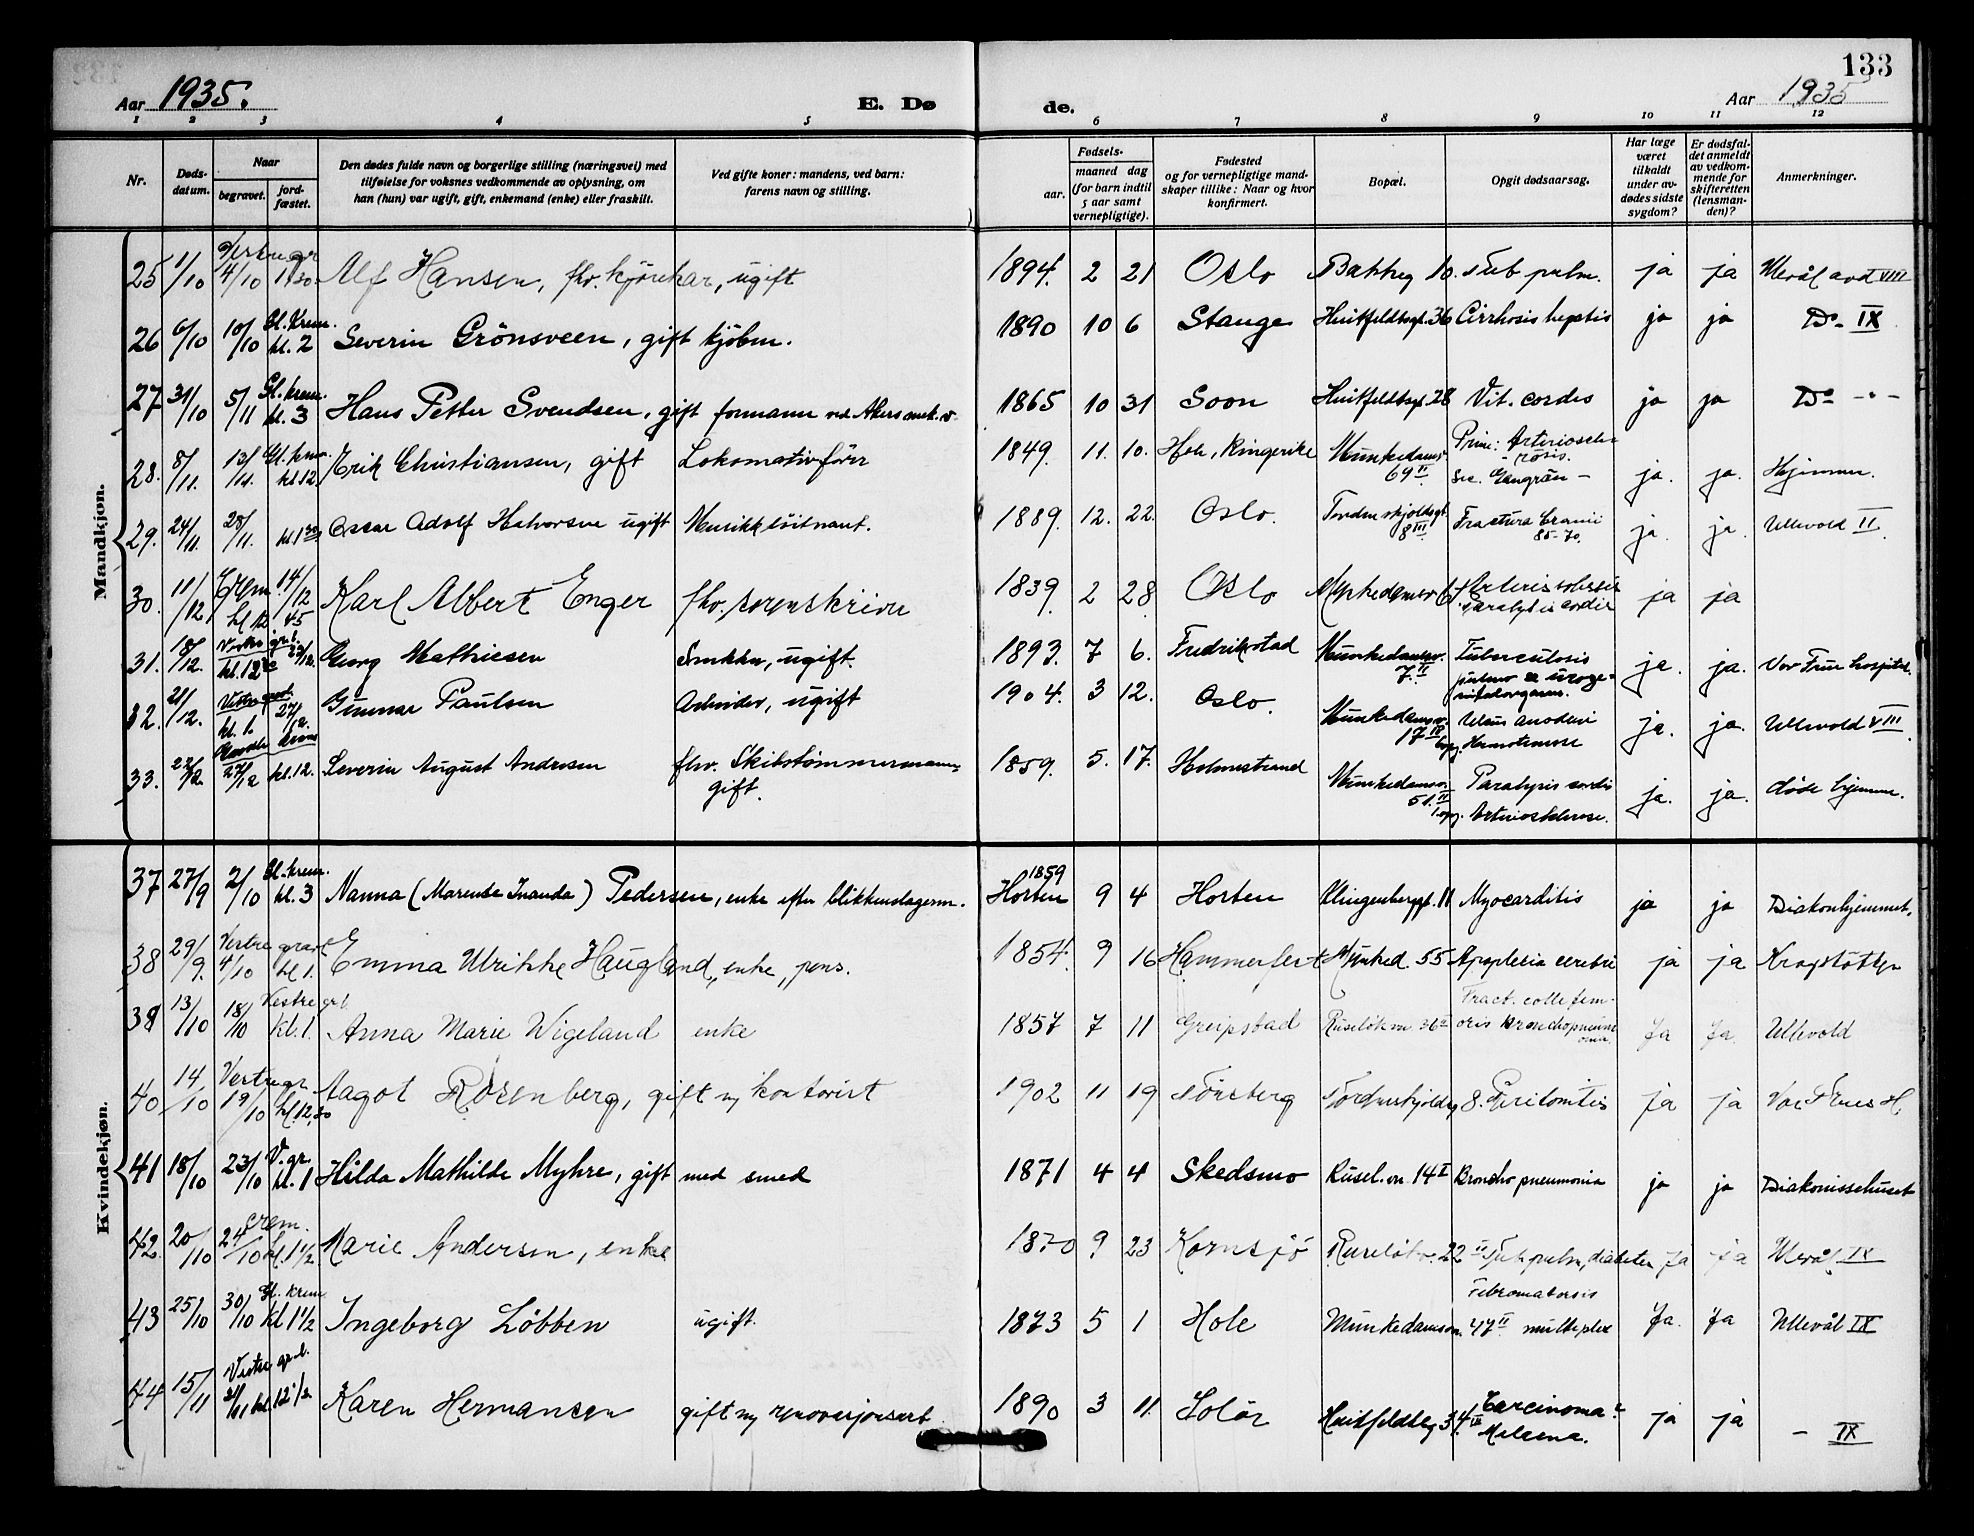 133
Aar 1935. E. Dø de. Aar 1935
1 2 3 4 5 6 7 8 9 10 11 12
Nr. Døds-datum. Naar begravet. jord-fæstet. Den dødes fulde navn og borgerlige stilling (næringsvei) med tilføielse for voksnes vedkommende av oplysning, om han (hun) var ugift, gift, enkemand (enke) eller fraskilt. Ved gifte koner: mandens, ved barn: farens navn og stilling. Fødsels- aar. maaned dag (for barn indtil 5 aar samt vernepligtige). Fødested og for vernepligtige mandskaper tillike: Naar og hvor konfirmert. Bopæl. Opgit dødsaarsag. Har læge været tilkaldt under avdødes sidste sygdom? Er dødsfaldet anmeldt av vedkommende for skifteretten (lensmanden)? Anmerkninger.
Mandkjøn.
25 1/10 Vestre gr 4/10 1 30 Alf Hansen, fhv. kjørekar, ugift 1894. 2 21 Oslo Bakkeg 10. Tub pulm. ja ja Ulevål avd VIII
26 6/10 10/10 Gl. Krem. kl. 2 Severin Grönsveen, gift kjöbm. 1890 10 6 Stange Huitfeldtsgt. 36 Cirrhosis hepatis ja ja Do - IX
27 31/10 5/11 Gl. krem. kl. 3 Hans Petter Svendsen, gift formann ved Akers mek. v. 1865 10 31 Soon Huitfeldtsgt. 28 Vit. cordis ja ja Do - " -
28. 8/11. 13/11. Gl. krem. kl 12. Erik Christiansen, gift Lokomotivförer 1849. 11. 10. Hole, Ringerike Munkedamsv 69 II Prim: Arterioscle- rosis. Sec. Gangrän - ja. ja. Hjemme.
29. 24/11. 28/11. kl 1 30 Oscar Adolf Halvorsen ugift Musikklöitnant. 1889. 12. 22. Oslo. Tordenskjoldsgt. 8 III Fractura Cranii 85-70. ja. ja. Ullevold II.
30. 11/12 Crem 14/12 kl 12 45 Karl Albert Enger fhv. sorenskriver 1839. 2 28 Oslo Arteriosclerosis paralysis cordis ja ja
31. 18/12. Vestre gr.l. kl. 12 Georg Mathiesen Snekker, ugift. 1893. 7 6. Fredrikstad Munkedamsv. 7. II Tuberculosis pulmo & uroge- nitalorganum. ja. ja. Vor Frue hospital.
32. 21/12. Vestre grav. kl. 1. 27/12. Gunnar Paulsen Arbeider, ugift 1904. 3 12. Oslo. Munkedamsv. 17 opg. Ulcus duodeni Hæmatemese ja. ja. Ullevold VIII.
33. 22/12. 27/12 kl. 12. Severin August Andersen fhv. Skibstømmermann, gift. 1859. 5. 17. Holmestrand Munkedamsv. 51. II opg. Paralysis cordis Arteriosklerose. ja. ja. döde hjemme.
Kvindekjøn.
37 27/9 2/10 Gl. krem. kl. 3 Nanna (Marense Inanda) Pedersen, enke efter blikkenslagerm. 1859 Horten 9 4 Horten Klingenberggt. 11 Myocarditis ja ja Diakonhjemmet.
38 29/9. Vestre gravl 4/10 kl 1. Emma Ulrikke Haugland, enke, pens. 1854. 9 16 Hammerfest Munked. 55 Apoplexia cerebri ja ja
39 13/10 18/10 Vestre gr.l kl. 1. Anna Marie Wigeland enke 1857 7 11 Greipstad Ruselökvn 36 II Fract. colle fem- oris Bronchopneum oma. Ja Ja. Ullevold
40 14/10 Vestre gr 19/10 kl. 12,30 Aagot Rosenberg, gift m kontorist 1902 11 19 Tönsberg Tordenskjoldsg 8. Peritonitis ja ja Vor Frues H.
41 18/10 23/10 V. gr. kl. 1 Hilda Mathilde Myhre, gift med smed 1871 4 4 Skedsmo Rusel.vn. 14 I Broncho pneumonia ja ja Diakonissehuset
42. 20/10 24/10 crem. kl. 1 1/2 Marie Andersen, enke 1870 9 23 Kornsjö Ruselökv. 22 II Tub pulm, diabetes ja ja Ulevål IX
43 25/10 30/10 Gl. krem. kl 1 1/2 Ingeborg Löbben ugift. 1873 5 1 Hole Munkedamsvn. 47 II Febromatosis multiplex Ja. Ja Ullevål IX
44 15/11 Vestre gr.l. 21/11 kl 12 1/2 Karen Hermansen gift m renovasjonsarb. 1890 3 11. Solör Huitfeldtsg 34 IV Carcinoma? Melæna. ja ja - IX